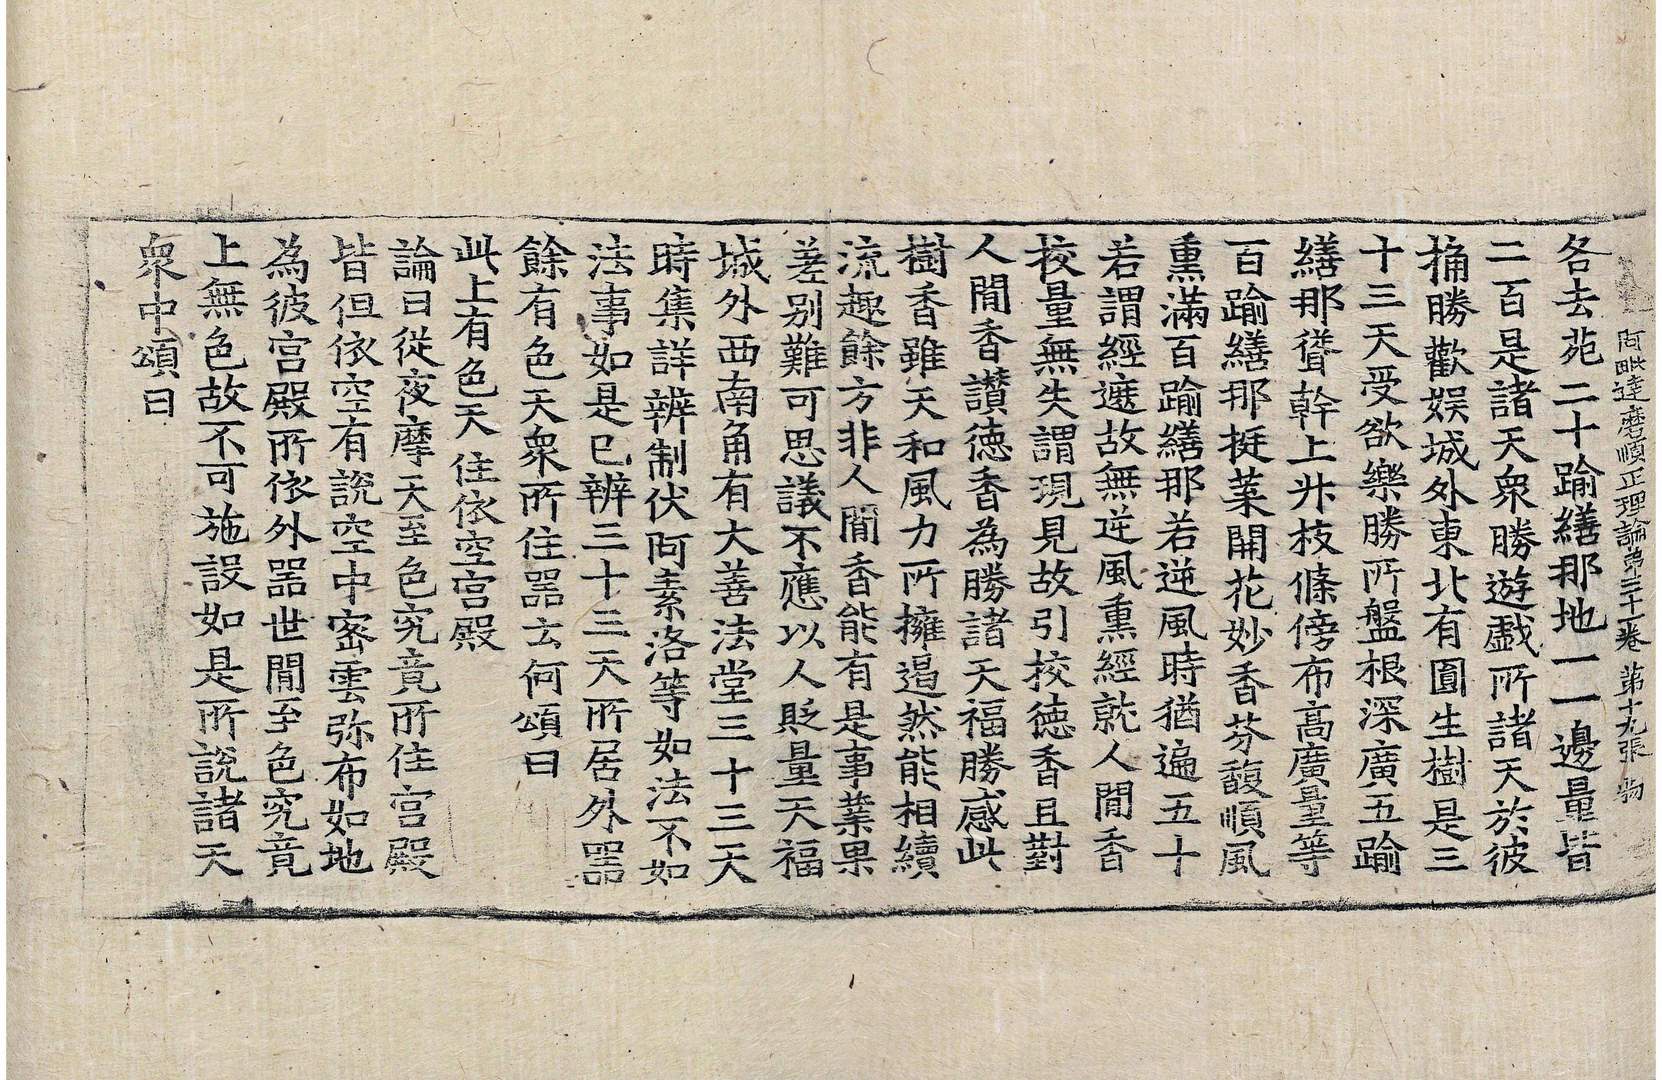 阿毗達磨順正理論第三十一卷 第十九張 物
各去苑二十踰繕那地一一邊量皆
二百是諸天衆勝遊戲所諸天於彼
捔勝歡娱城外東北有圓生樹是三
十三天受欲樂勝所盤根深廣五踰
繕那聳幹上昇枝條傍布高廣量等
百踰繕那挺葉開花妙香芬馥順風
熏滿百踰繕那若逆風時猶遍五十
若謂經遮故無逆風熏經就人間香
挍量無失謂現見故引挍德香且對
人間香讃德香為勝諸天福勝感此
樹香雖天和風力所擁遏然能相續
流趣餘方非人間香能有是事業果
差別難可思議不應以人貶量天福
城外西南角有大善法堂三十三天
時集詳辨制伏阿素洛等如法不如
法事如是已辨三十三天所居外器
餘有色天衆所住器云何頌曰
此上有色天 住依空宫殿
論曰從夜摩天至色究竟所住宫殿
皆但依空有說空中密雲弥布如地
為彼宫殿所依外器世間至色究竟
上無色故不可施設如是所說諸天
衆中頌曰